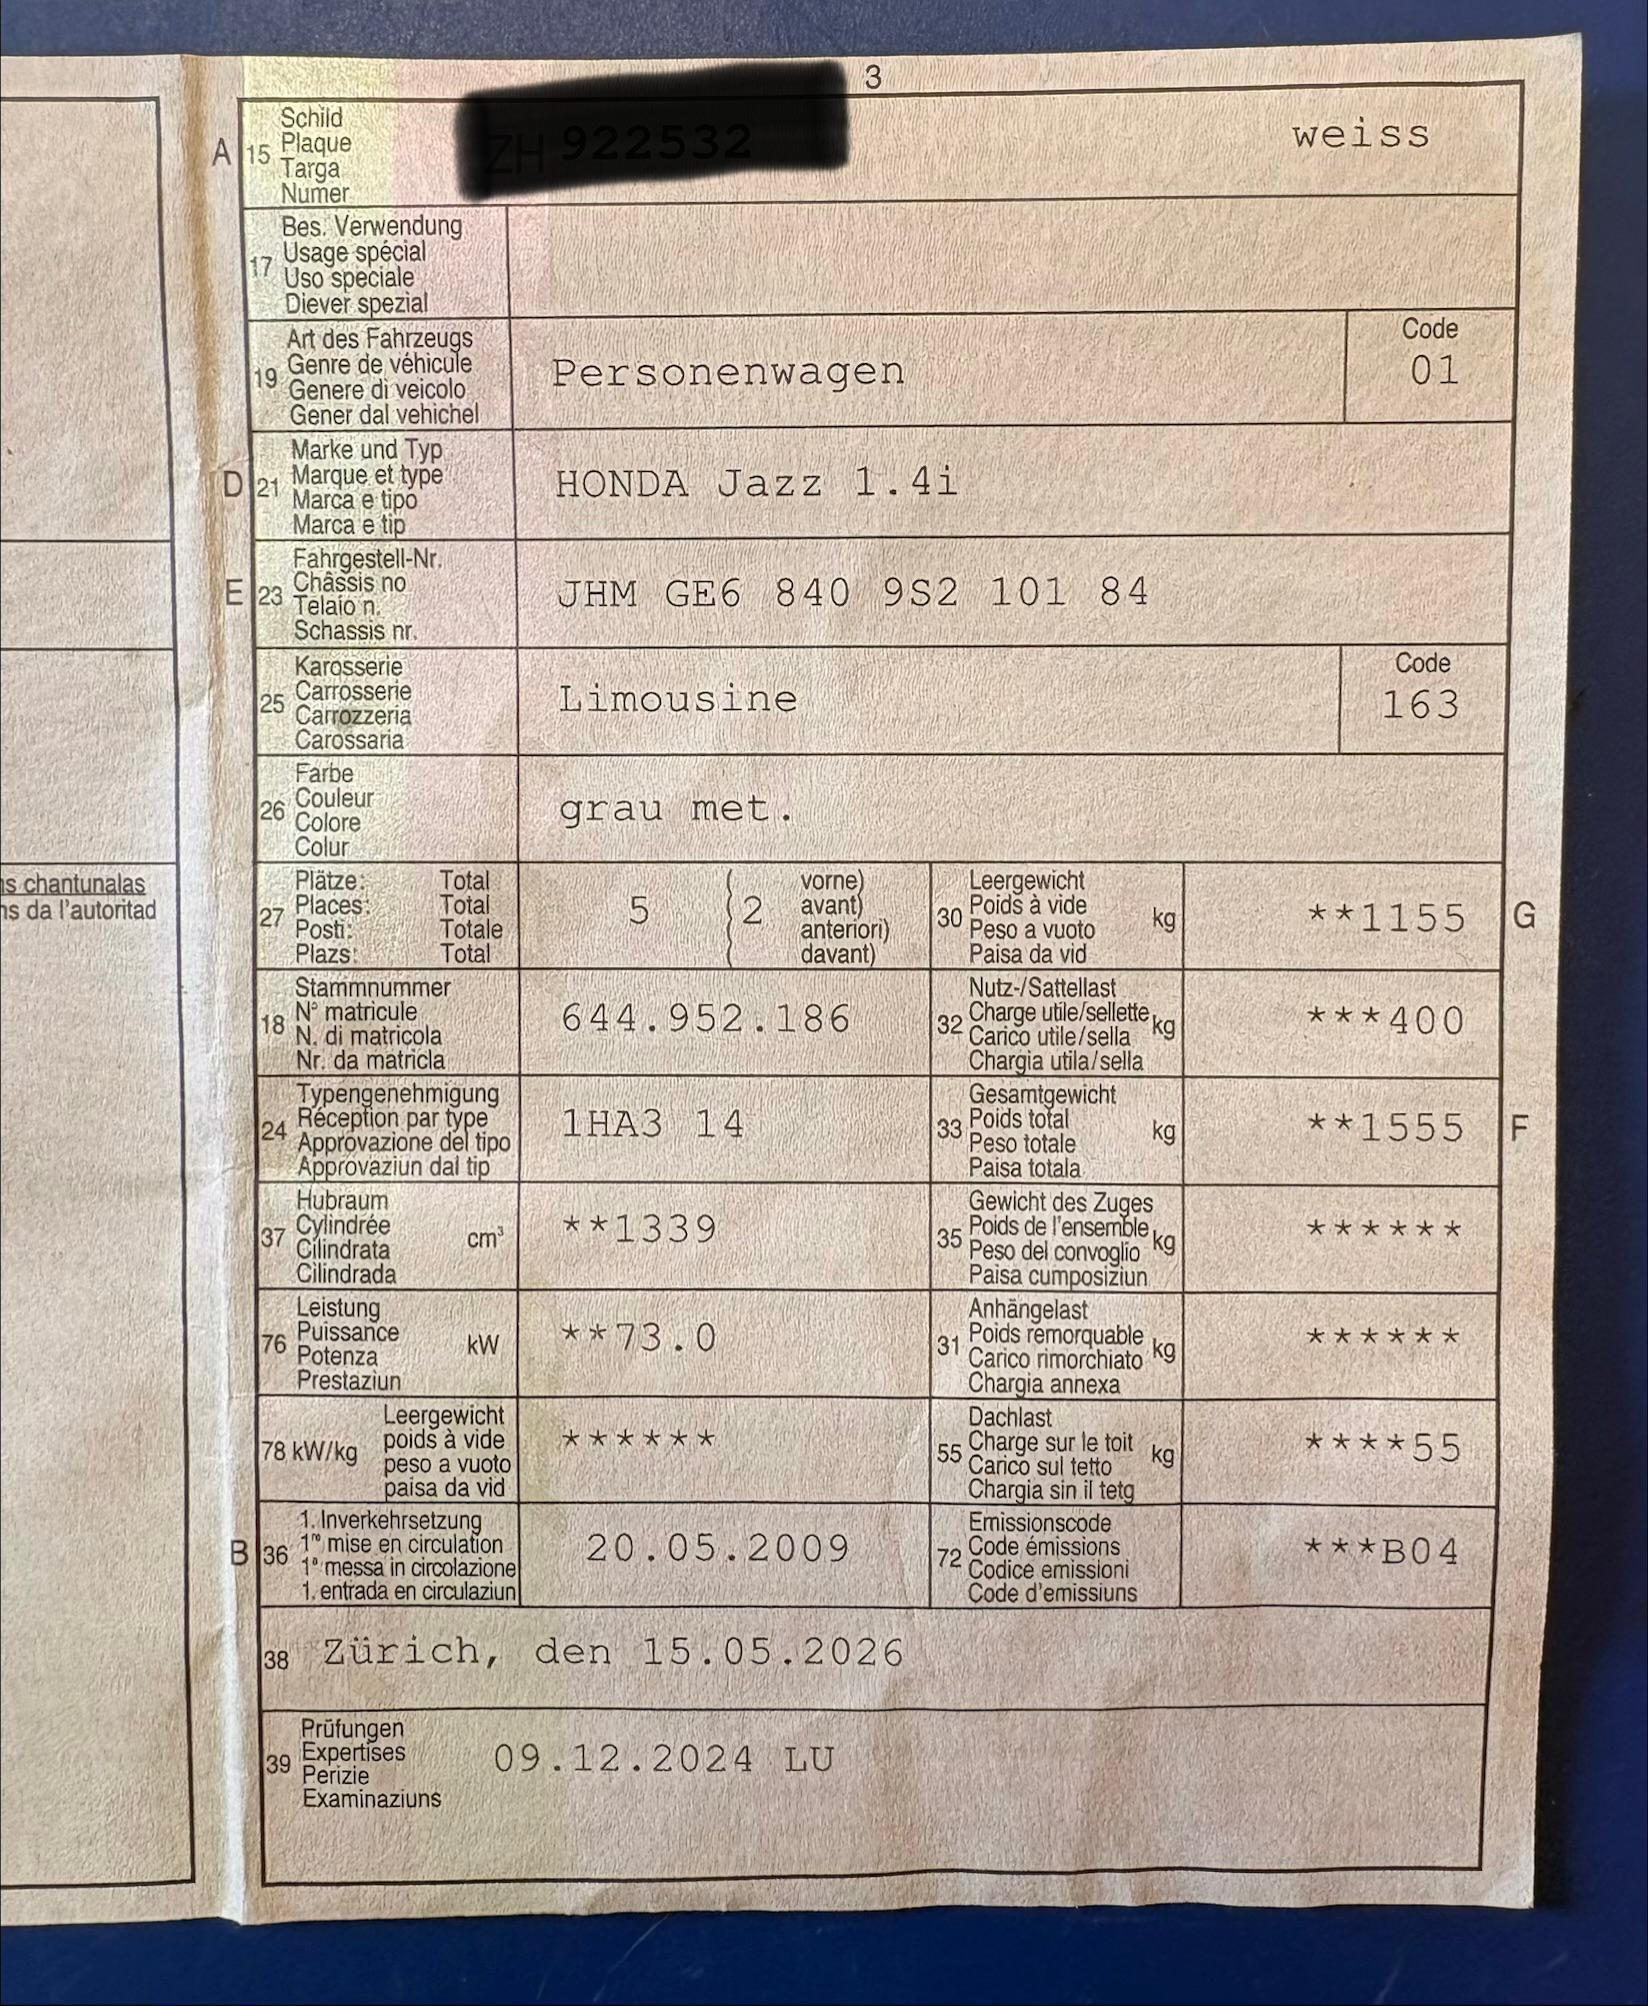 3
A 15 Schild
Plaque
Targa
Numer
weiss
17 Bes. Verwendung
Usage spécial
Uso speciale
Diever spezial
19 Art des Fahrzeugs
Genre de véhicule
Genere di veicolo
Gener dal vehichel
Personenwagen
Code
01
D 21 Marke und Typ
Marque et type
Marca e tipo
Marca e tip
HONDA Jazz 1.4i
E 23 Fahrgestell-Nr.
Châssis no
Telaio n.
Schassis nr.
JHM GE6 840 9S2 101 84
25 Karosserie
Carrosserie
Carrozzeria
Carossaria
Limousine
Code
163
26 Farbe
Couleur
Colore
Colur
grau met.
ns chantunalas
ns da l'autoritad
27 Plätze: Total
Places: Total
Posti: Totale
Plazs: Total
5 ( 2 vorne)
avant)
anteriori)
davant)
30 Leergewicht
Poids à vide
Peso a vuoto
Paisa da vid
kg **1155 G
18 Stammnummer
N° matricule
N. di matricola
Nr. da matricla
644.952.186
32 Nutz-/Sattellast
Charge utile/sellette
Carico utile/sella
Chargia utila/sella
kg ***400
24 Typengenehmigung
Réception par type
Approvazione del tipo
Approvaziun dal tip
1HA3 14
33 Gesamtgewicht
Poids total
Peso totale
Paisa totala
kg **1555 F
37 Hubraum
Cylindrée
Cilindrata
Cilindrada
cm³ **1339
35 Gewicht des Zuges
Poids de l'ensemble
Peso del convoglio
Paisa cumposiziun
kg ******
76 Leistung
Puissance
Potenza
Prestaziun
kW **73.0
31 Anhängelast
Poids remorquable
Carico rimorchiato
Chargia annexa
kg ******
78 kW/kg Leergewicht
poids à vide
peso a vuoto
paisa da vid
******
55 Dachlast
Charge sur le toit
Carico sul tetto
Chargia sin il tetg
kg ****55
B 36 1. Inverkehrsetzung
1re mise en circulation
1a messa in circolazione
1. entrada en circulaziun
20.05.2009
72 Emissionscode
Code émissions
Codice emissioni
Code d'emissiuns
***B04
38 Zürich, den 15.05.2026
39 Prüfungen
Expertises
Perizie
Examinaziuns
09.12.2024 LU